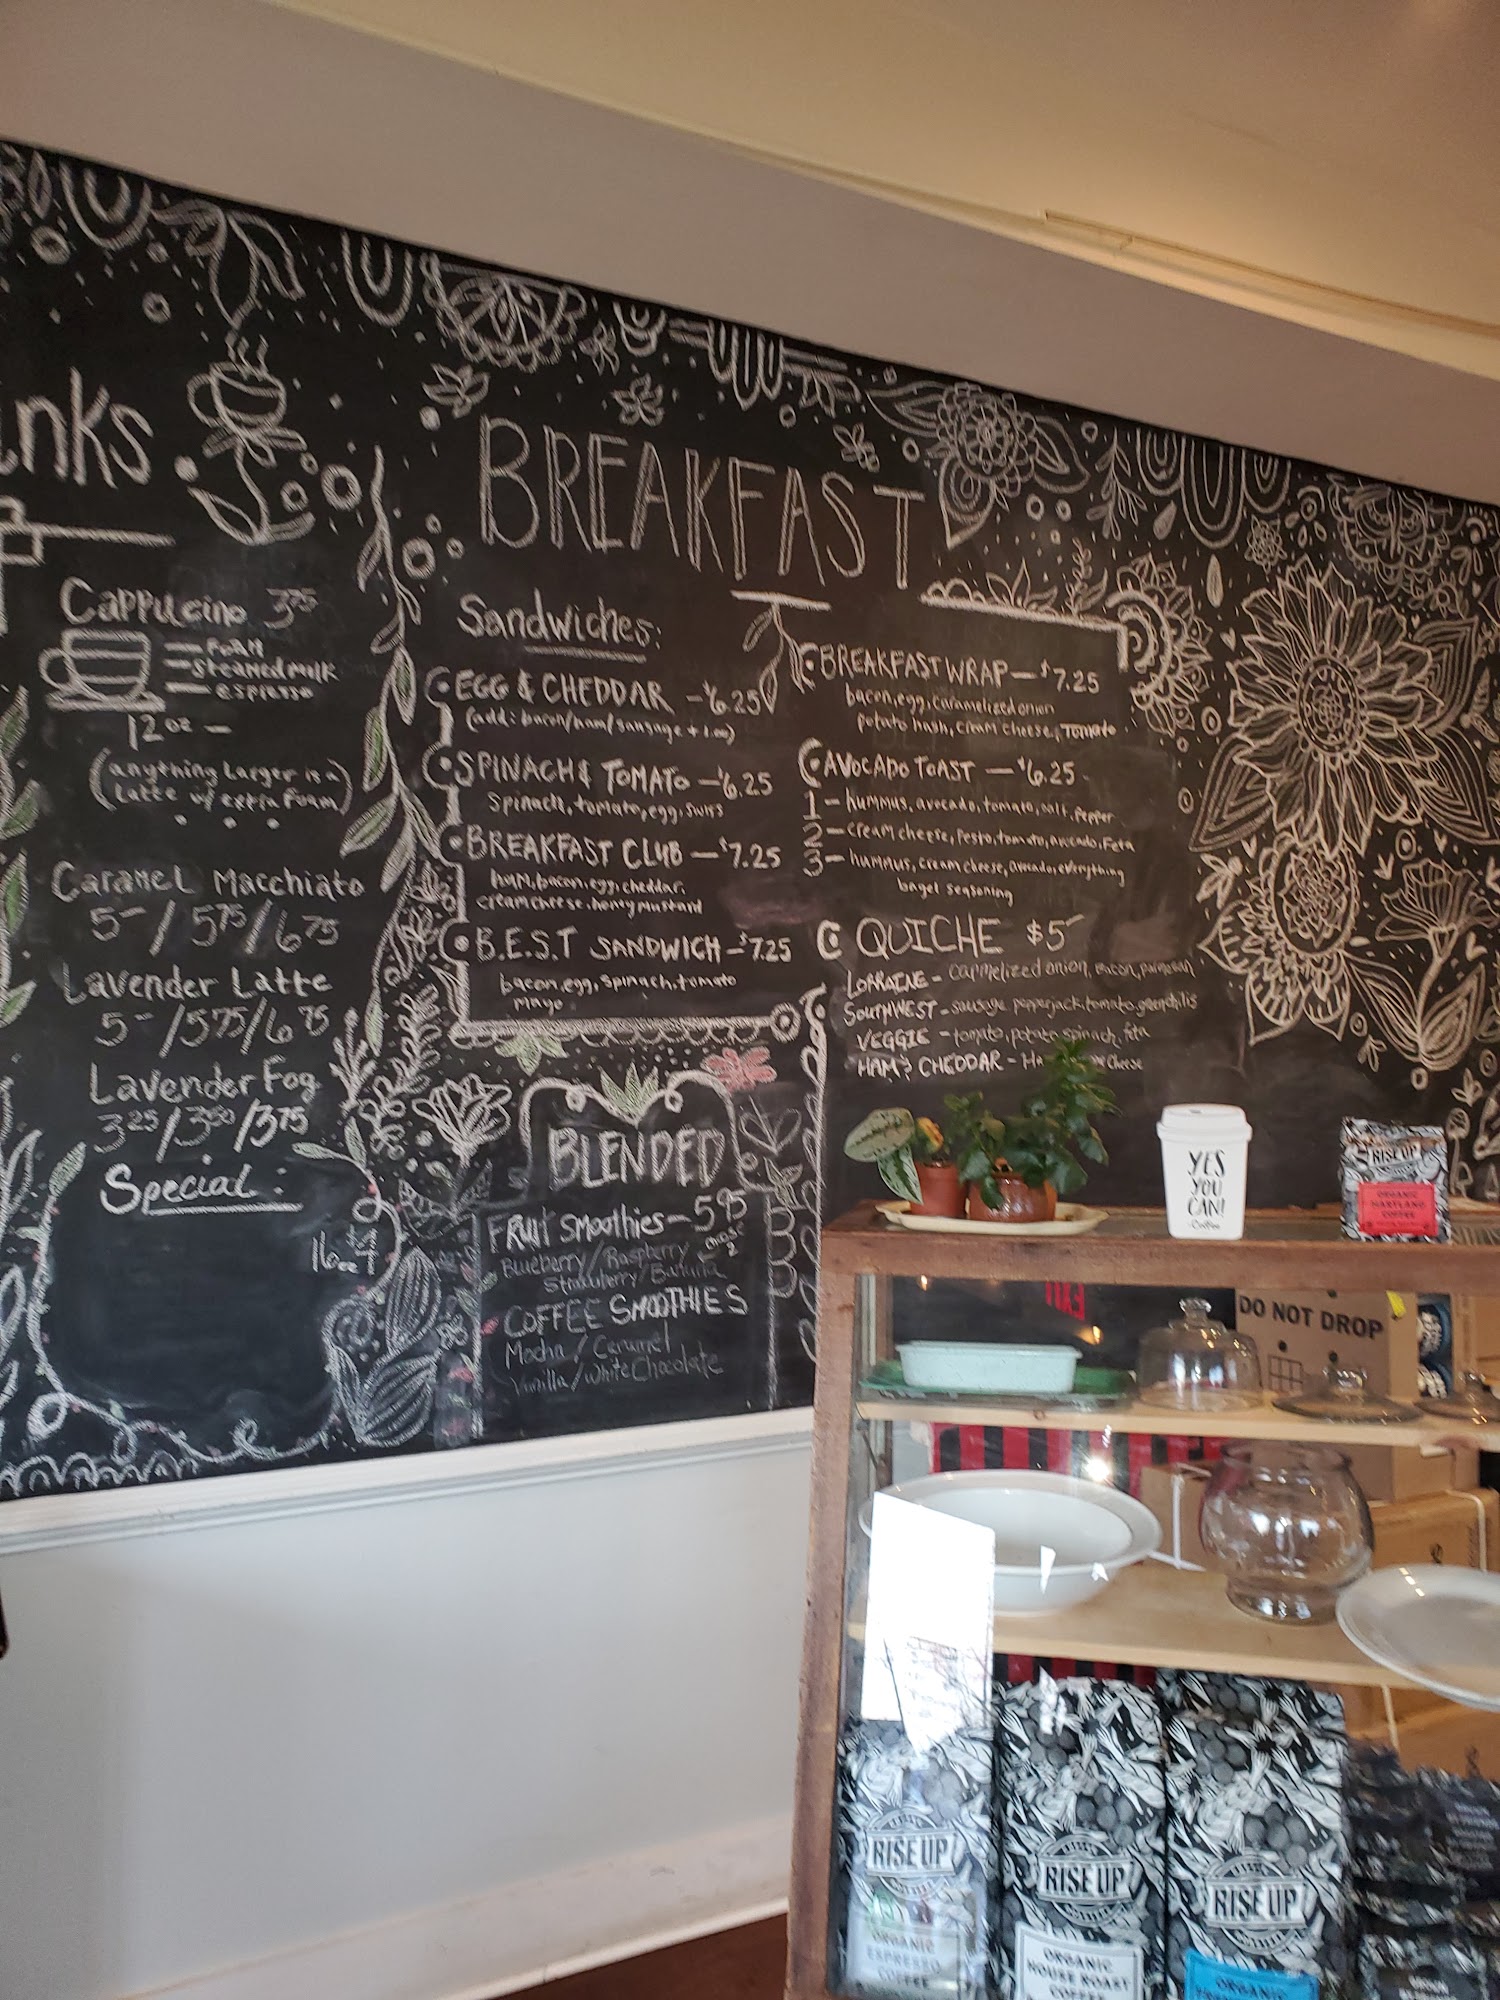 Cappuccino 3.75
FOAM
steamed milk
espresso
12 oz —
(anything larger is a
latte w/ extra foam)
Caramel Macchiato
5- / 5.75 / 6.75
Lavender Latte
5- / 5.75 / 6.75
Lavender Fog
3.25 / 3.50 / 3.75
Special:
BREAKFAST
Sandwiches:
EGG & CHEDDAR — $6.25
(add: bacon/ham/sausage + 1.00)
SPINACH & TOMATO — $6.25
spinach, tomato, egg, swiss
BREAKFAST CLUB — $7.25
ham, bacon, egg, cheddar,
cream cheese, honey mustard
B.E.S.T SANDWICH — $7.25
bacon, egg, spinach, tomato
mayo
BREAKFAST WRAP — $7.25
bacon, egg, caramelized onion
potato hash, cream cheese, tomato
AVOCADO TOAST — $6.25
1 — hummus, avocado, tomato, salt, pepper
2 — cream cheese, pesto, tomato, avocado, Feta
3 — hummus, cream cheese, avocado, everything
bagel seasoning
QUICHE $5-
LORRAINE - carmelized onion, bacon, parmesan
SOUTHWEST - sausage, pepperjack, tomato, greenchilis
VEGGIE - tomato, potato, spinach, feta
HAM & CHEDDAR - Cheese
BLENDED
FRUIT SMOOTHIES — 5.95
Blueberry / Raspberry
Strawberry / Banana
16oz
COFFEE SMOOTHIES
Mocha / Caramel
Vanilla / White Chocolate
YES
YOU
CAN!
-Coffee
RISE UP
ORGANIC
COFFEE
DO NOT DROP
RISE UP
ORGANIC
ESPRESSO
COFFEE
RISE UP
ORGANIC
HOUSE ROAST
COFFEE
RISE UP
ORGANIC